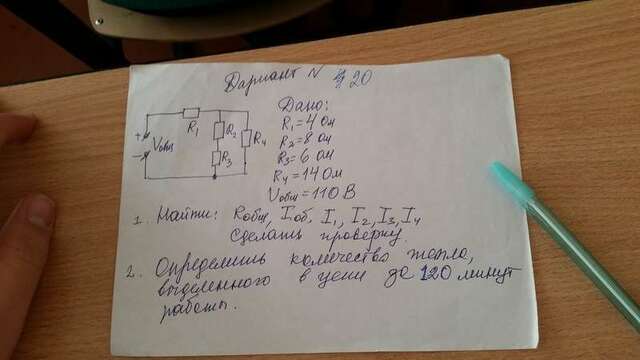 Вариант N 20
Дано:
R1 = 4 Ом
R2 = 8 Ом
R3 = 6 Ом
R4 = 14 Ом
Vобщ = 110 В
R1
R2
R3
R4
+
Vобщ
−
1. Найти: Rобщ, Iоб. I1, I2, I3, I4
Сделать проверку.
2. Определить количество тепла,
выделенного в цепи за 120 минут
работы.